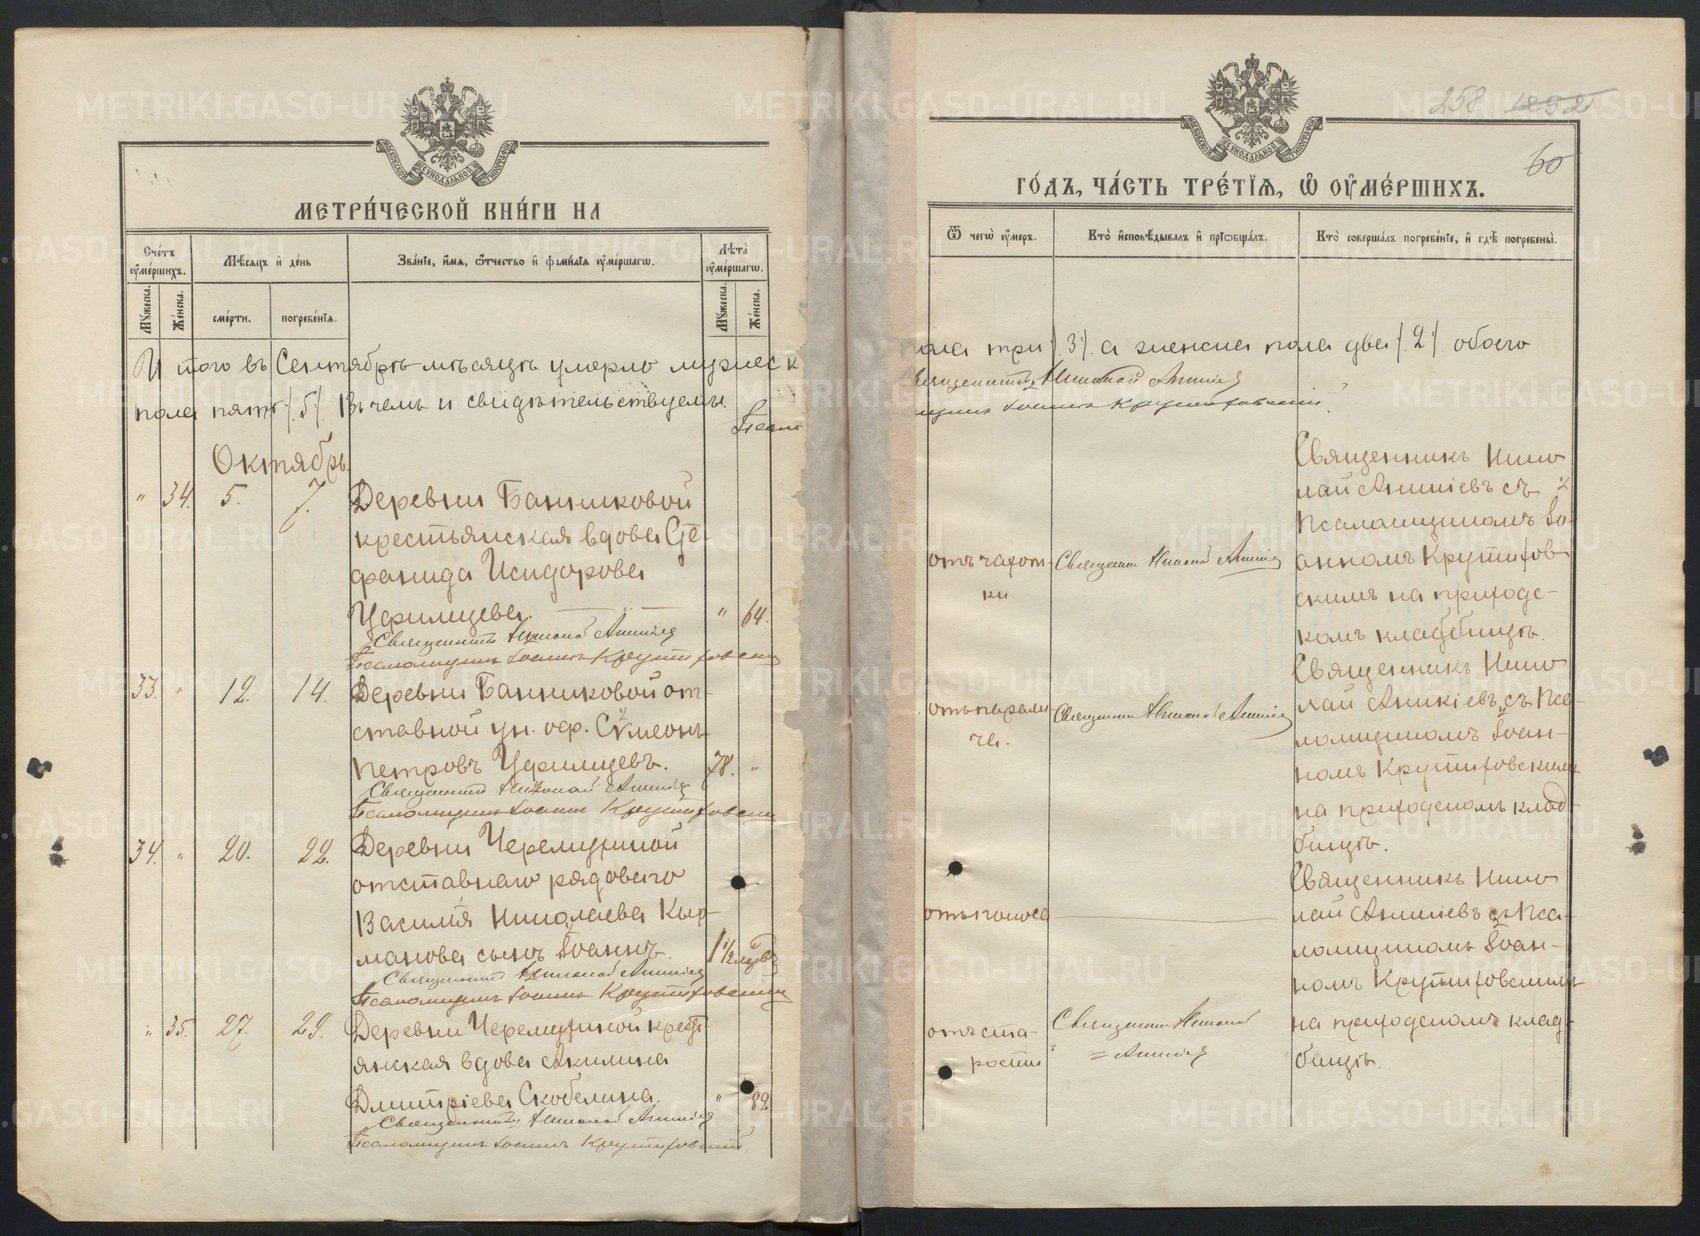 МЕТРИ́ЧЕСКОЙ КНИ́ГИ НА
Сче́тъ ᲂу҆ме́ршихъ.
Мѣ́сяцъ и҆ де́нь
Зва́нїе, и҆́мя, ѻ҆́тчество и҆ фами́лїя ᲂу҆ме́ршагѡ.
Лѣ́та ᲂу҆ме́ршагѡ.
Мꙋ́жеска.
Же́нска.
сме́рти.
погребе́нїя.
Мꙋ́жеска.
Же́нска.
И того въ Сентябрѣ мѣсяцѣ умерло мужеск
пола пять /.5/. Въ чемъ и свидѣтельствуемъ.
Псал
Октябрь.
" 34. 5. 7. Деревни Банниковой
крестьянская вдова Сте-
фанида Исидорова
Уфимцева. " 64.
Священникъ Николай Аникіев
Псаломщикъ Іоаннъ Крутиховскій
33. " 12. 14. Деревни Банниковой от-
ставной ун. оф. Сѵмеонъ
Петровъ Уфимцевъ. 78. "
Священникъ Николай Аникіев
Псаломщикъ Іоаннъ Крутиховскій
34. " 20. 22. Деревни Черемушной
отставнаго рядоваго
Василія Николаева Кыр-
манова сынъ Іоаннъ. 1 1/2
Священникъ Николай Аникіев
Псаломщикъ Іоаннъ Крутиховскій
" 35. 27. 29. Деревни Черемушной кресть-
янская вдова Акилина
Димитріева Скобелина. " 82
Священникъ Николай Аникіев
Псаломщикъ Іоаннъ Крутиховскій
258
60
ГО́ДЪ, ЧА́СТЬ ТРЕ́ТЇѦ, Ѡ҆ ОУ҆МЕ́РШИХЪ.
Ѿ чегѡ̀ ᲂу҆́меръ.
Кто̀ и҆сповѣ́дывалъ и҆ прїѡбща́лъ.
Кто̀ соверша́лъ погребе́нїе, и҆ гдѣ̀ погребены̀.
пола три /.3/. а женска пола два /.2/. обоего
Священникъ Николай Аникіев
Іоаннъ Крутиховскій.
отъ чахот-
ки
Священник Николай Аникіев
Священникъ Нико
лай Аникіевъ съ
Псаломщикомъ Іо-
анномъ Крутихов-
скимъ на приходс-
комъ кладбищѣ.
отъ парали-
ча.
Священник Николай Аникіев
Священникъ Нико
лай Аникіевъ съ Пса-
ломщикомъ Іоан-
номъ Крутиховскимъ
на приходскомъ клад-
бищѣ.
отъ поноса
Священникъ Нико
лай Аникіевъ съ Пса-
ломщикомъ Іоан-
номъ Крутиховскимъ
на приходскомъ клад-
бищѣ.
отъ ста-
рости
Священник Николай
Аникіев
METRIKI.GASO-URAL.RU